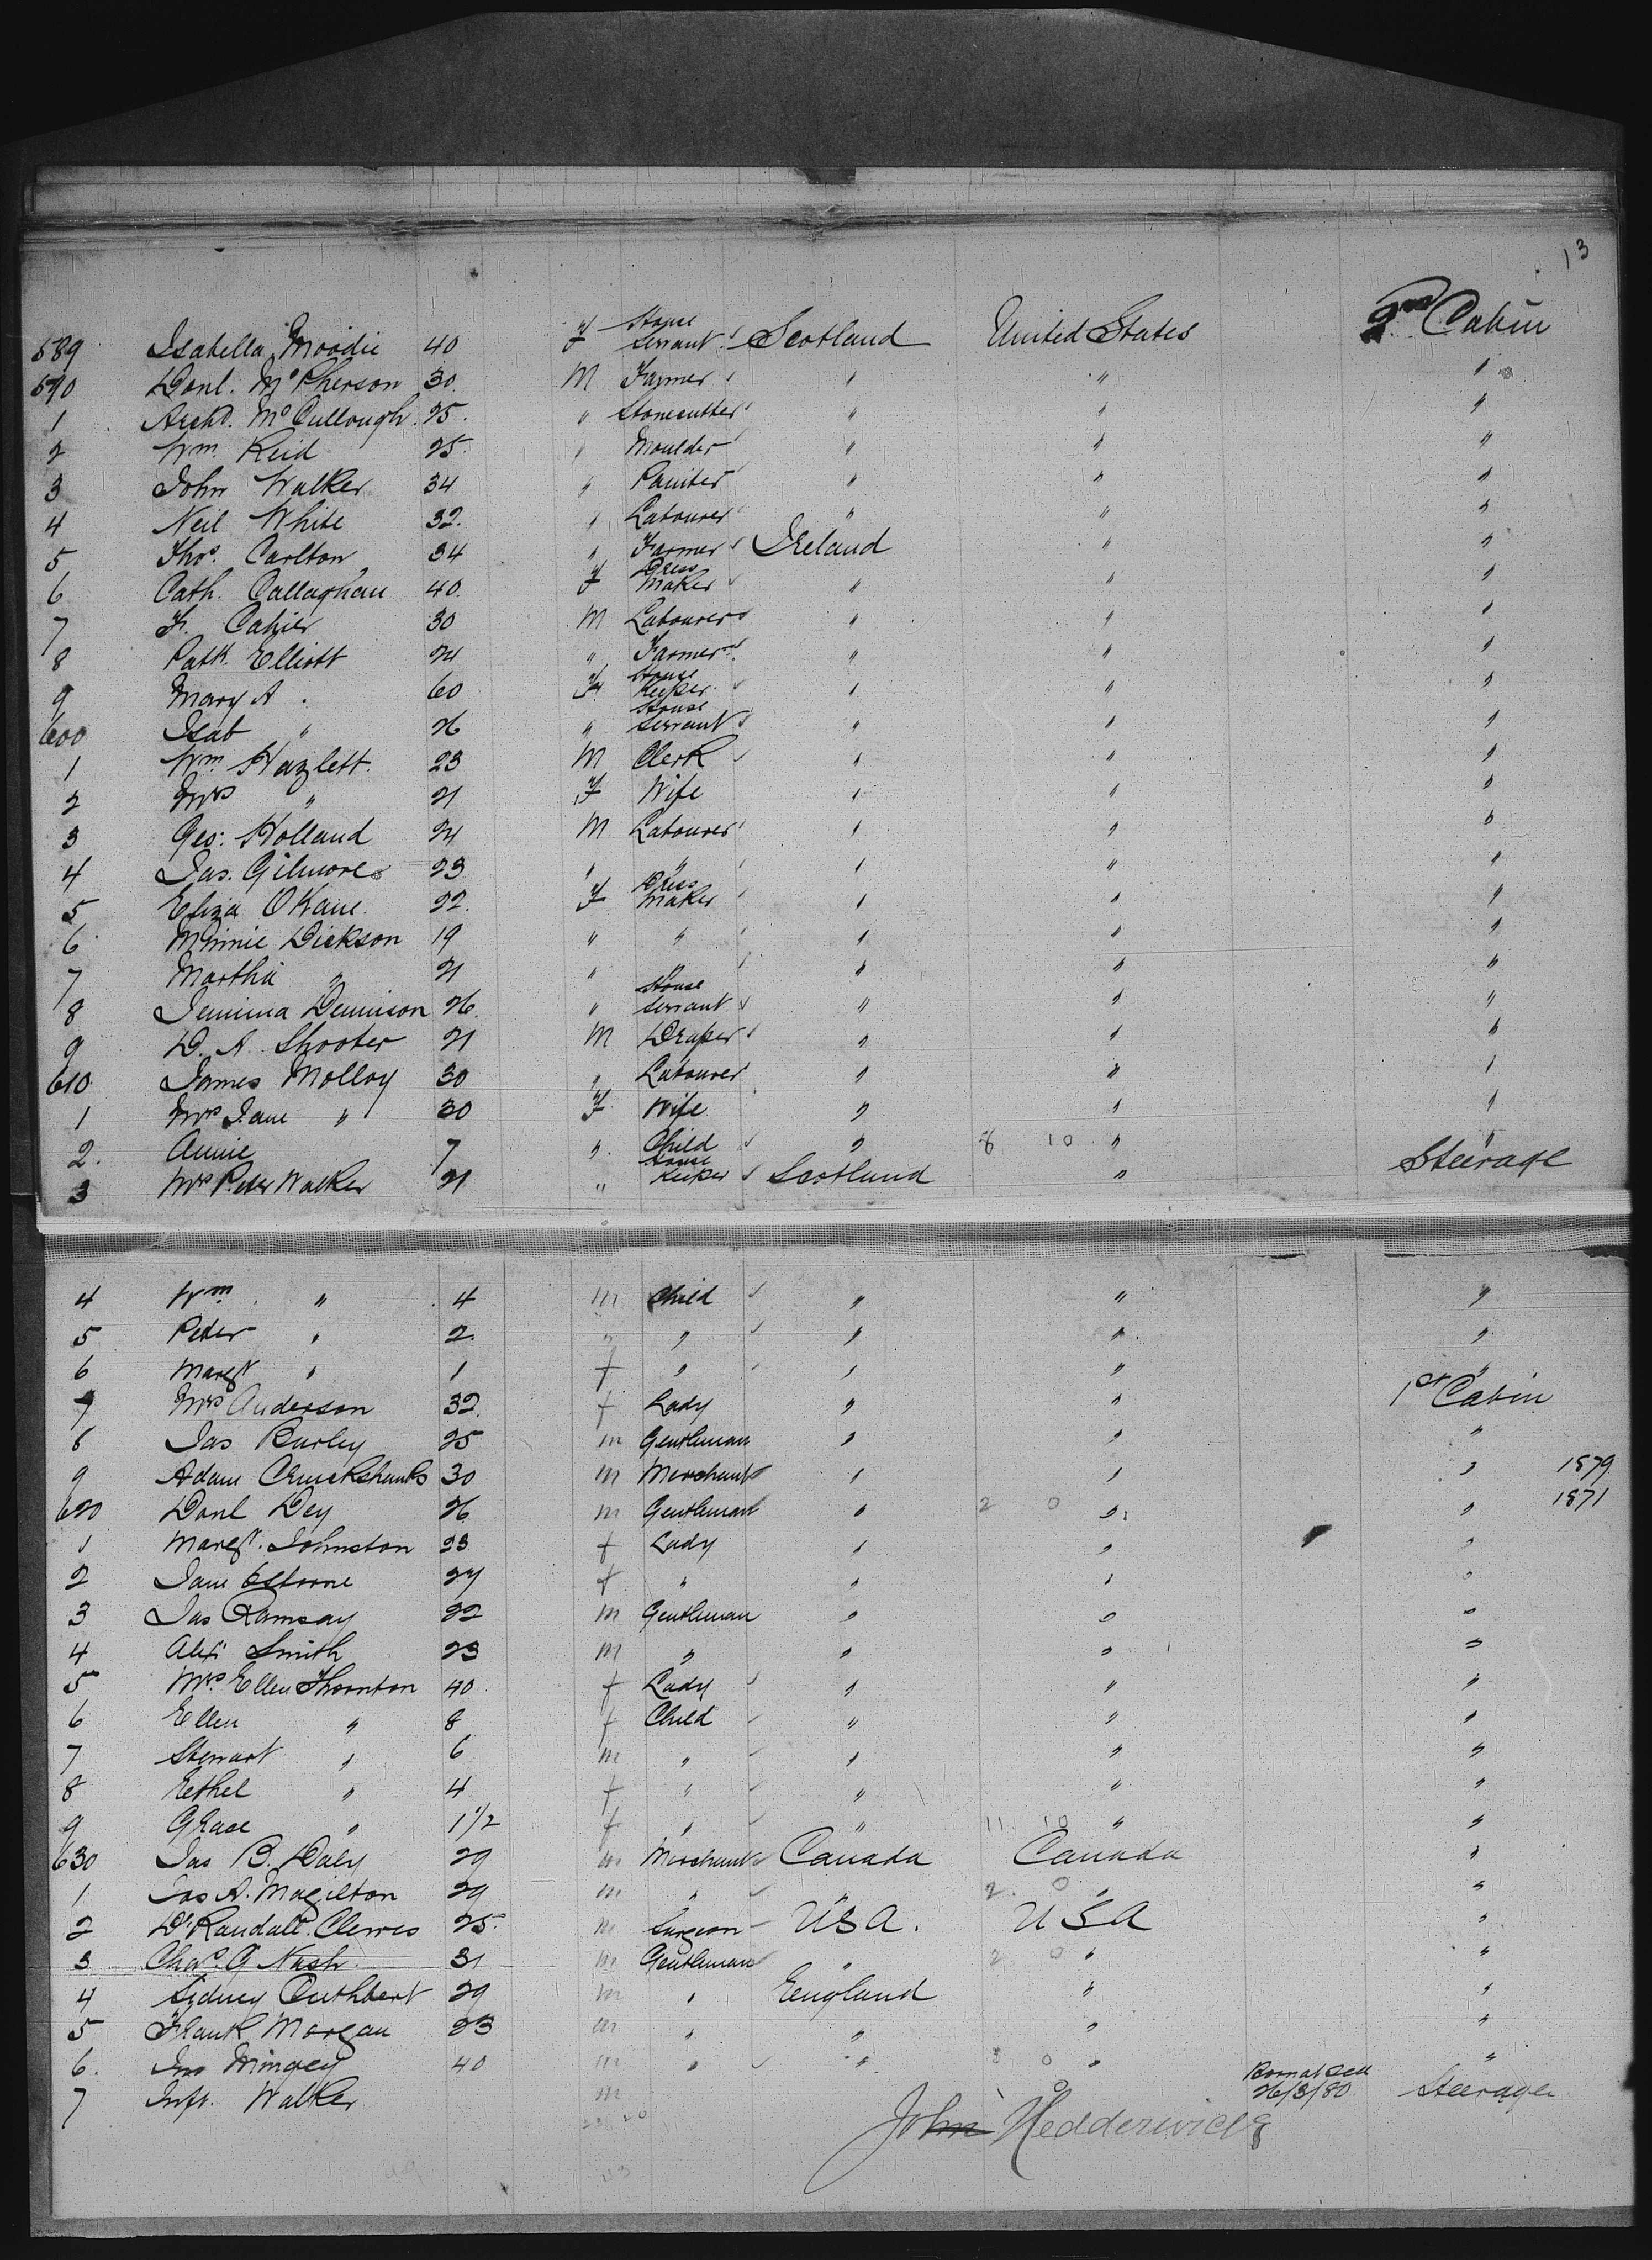 13
589 Isabella Moodie 40 F House Servant Scotland United States 2nd Cabin
590 Danl. McPherson 30 M Farmer " " "
1 Archd. McCullough 25 " Stonecutter " " "
2 Wm Reid 25 " Moulder " " "
3 John Walker 34 " Painter " " "
4 Neil White 32 " Labourer " " "
5 Thos. Carlton 34 " Farmer Ireland " "
6 Cath. Callaghan 40 F Dress Maker " " "
7 F. 30 M Labourer " " "
8 Patk. Elliott 24 " Farmer " " "
9 Mary A " 60 F House Keeper " " "
600 Isab " 26 " House Servant " " "
1 Wm Hazlett 23 M Clerk " " "
2 Mrs " 21 F Wife " " "
3 Geo: Holland 24 M Labourer " " "
4 Jas. Gilmore 23 " " " " "
5 Eliza OKane 22 F Dress Maker " " "
6 Minnie Dickson 19 " " " " "
7 Martha " 21 " " " " "
8 Jemima Dennison 26 " House Servant " " "
9 D. A. Shooter 21 M Draper " " "
610 James Molloy 30 " Labourer " " "
1 Mrs Jane " 30 F Wife " " "
2 Annie 7 " Child " 8 10 " "
3 Mrs Peter Walker 21 " House Keeper Scotland " Steerage
4 Wm " 4 m Child " " "
5 Peter " 2 " " " " "
6 Margt " 1 f " " " "
7 Mrs Anderson 32 f Lady " " 1st Cabin
8 Jas Burley 25 m Gentleman " " "
9 Adam Cruickshanks 30 m Merchant " " " 1879
620 Danl Dey 26 m Gentleman " 2 0 " " 1871
1 Margt. Johnston 23 f Lady " " "
2 Jane Osborne 27 f " " " "
3 Jas Ramsay 22 m Gentleman " " "
4 Alex Smith 23 m " " " "
5 Mrs Ellen Thornton 40 f Lady " " "
6 Ellen " 8 f Child " " "
7 Stewart " 6 m " " " "
8 Eethel " 4 f " " " "
9 Grace " 1 1/2 f " " 11 10 " "
630 Jas B. Daly 29 m Merchant Canada Canada "
1 Jas A. Magilton 29 m " " 2 0 " "
2 Dr Randall Clewes 25 m Surgeon USA. USA "
3 Chas. G Nash 31 m Gentleman " 2 0 " "
4 Sydney Cuthbert 29 m " Eengland " "
5 Frank Morgan 23 m " " " "
6. Jno Mingey 40 m " " 3 0 " "
7 Inft. Walker m Born at Sea 26/3/80 Steerage
John Hedderwick